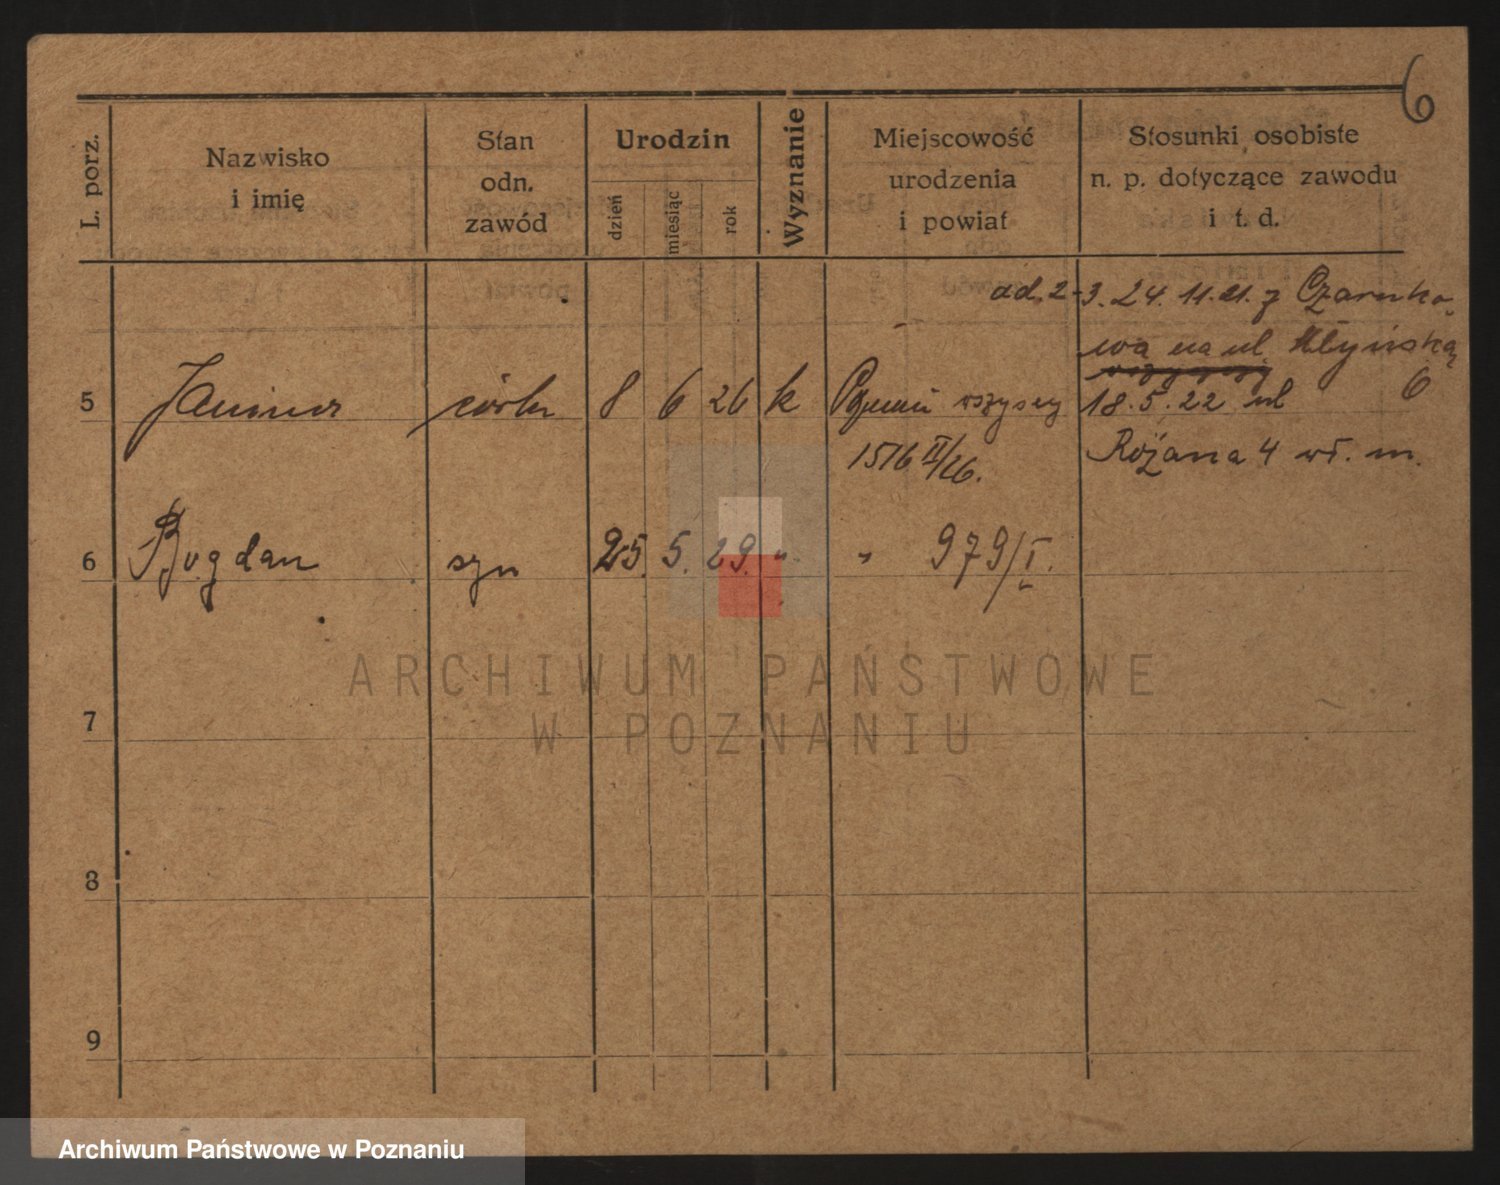 6
L. porz.
Nazwisko
i imię
Stan
odn.
zawód
Urodzin
dzień
miesiąc
rok
Wyznanie
Miejscowość
urodzenia
i powiat
Stosunki osobiste
n. p. dotyczące zawodu
i t. d.
ad. 2-3. 24. 11. 21. z Czarnko-
wa na ul Młyńską
6
5 Janina córka 8 6 26 k Poznań wszyscy 18.5.22 ul
1516 II/26. Różana 4 wł. m.
6 Bogdan syn 25. 5. 29. " " 979/I.
7
8
9
ARCHIWUM PAŃSTWOWE
W POZNANIU
Archiwum Państwowe w Poznaniu